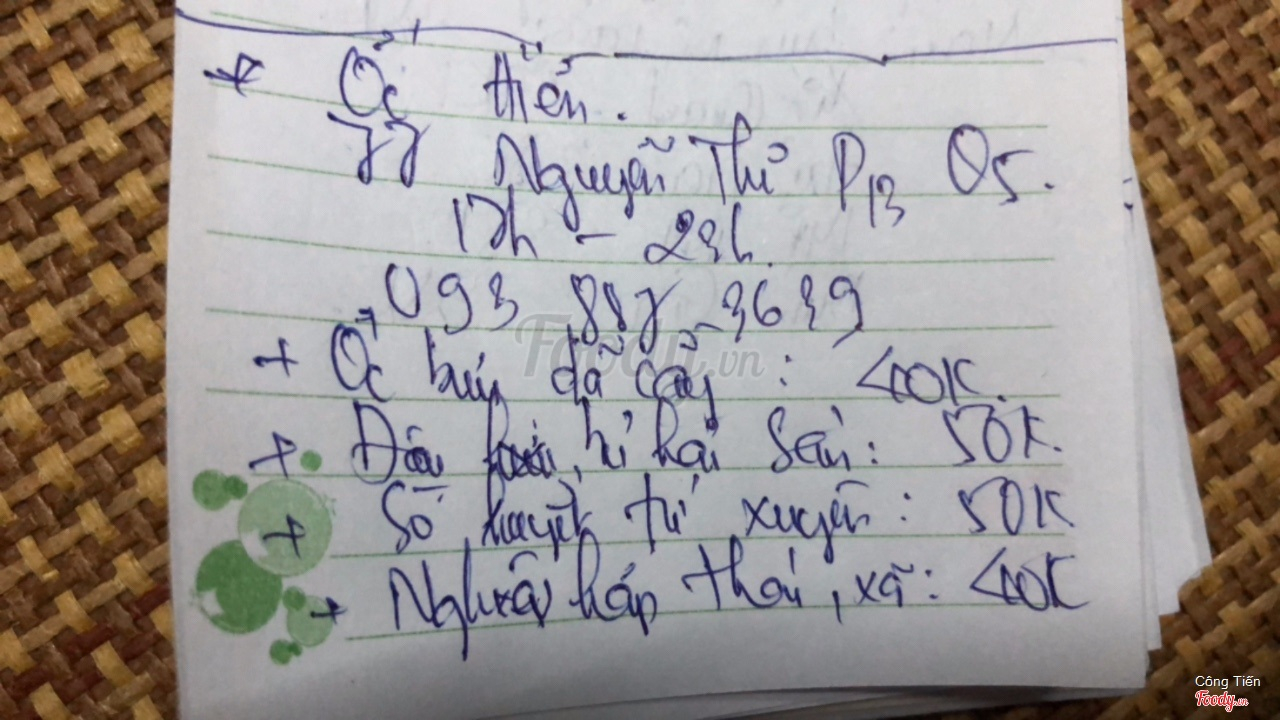 * Ốc Hiền.
77 Nguyễn Thi P13 Q5.
17h - 23h.
093 887 3639
Foody.vn
+ Ốc bưu dã cầy : 40K.
+ Đậu hải sản : 50K.
+ Sò huyết tứ xuyên : 50K
+ Nghêu hấp thái, xã : 40K
Công Tiến
Foody.vn